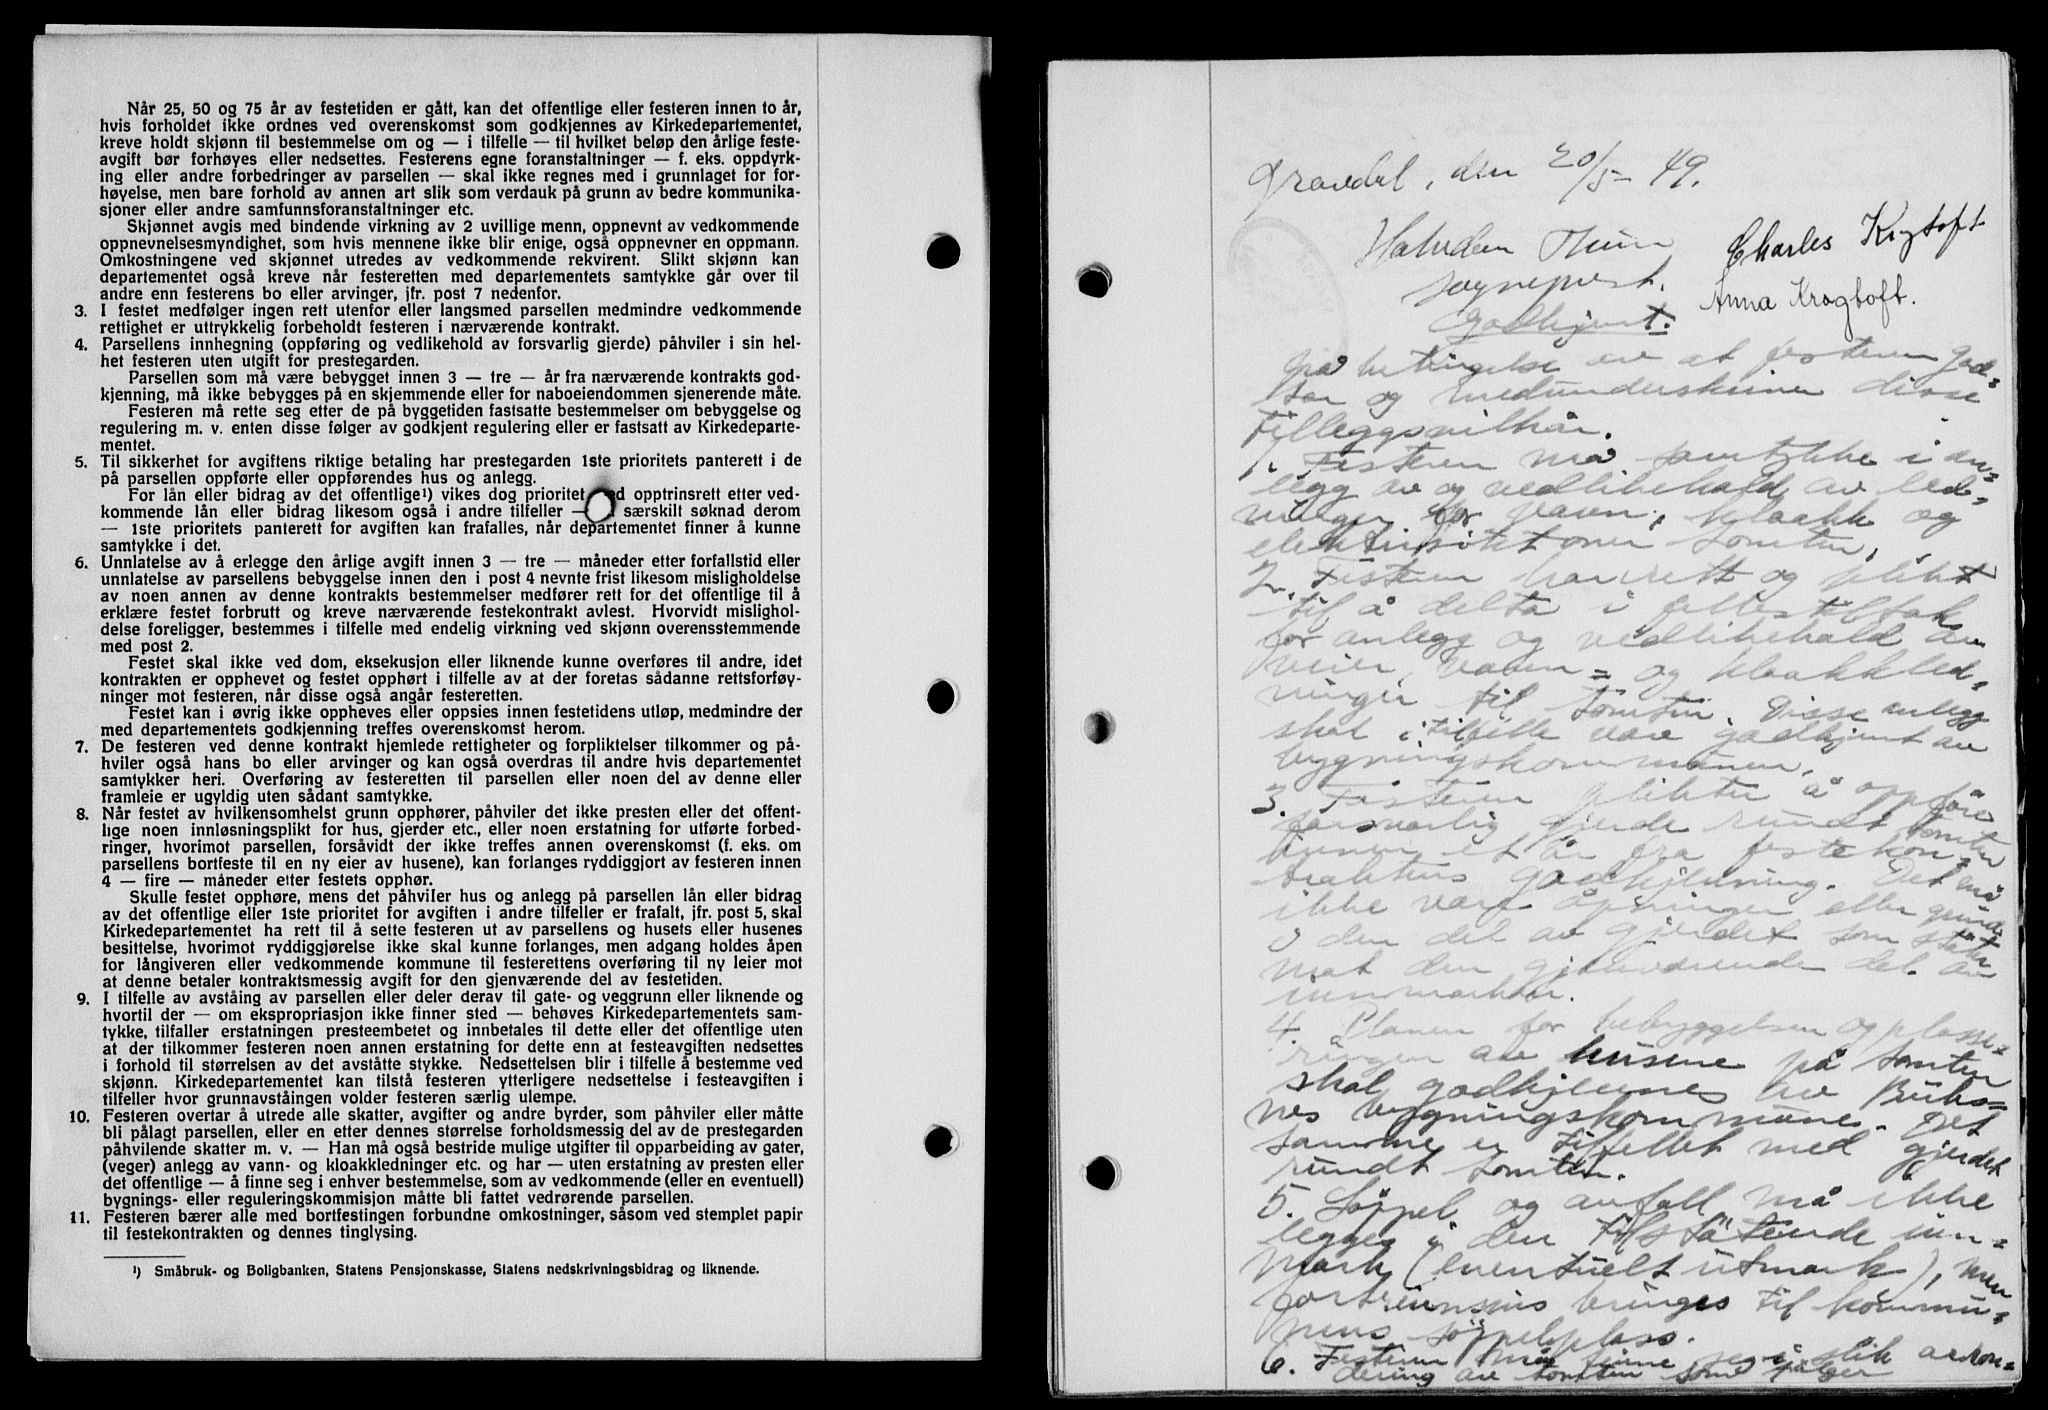 Når 25, 50 og 75 år av festetiden er gått, kan det offentlige eller festeren innen to år,
hvis forholdet ikke ordnes ved overenskomst som godkjennes av Kirkedepartementet,
kreve holdt skjønn til bestemmelse om og — i tilfelle — til hvilket beløp den årlige feste-
avgift bør forhøyes eller nedsettes. Festerens egne foranstaltninger — f. eks. oppdyrk-
ing eller andre forbedringer av parsellen — skal ikke regnes med i grunnlaget for for-
høyelse, men bare forhold av annen art slik som verdauk på grunn av bedre kommunika-
sjoner eller andre samfunnsforanstaltninger etc.
Skjønnet avgis med bindende virkning av 2 uvillige menn, oppnevnt av vedkommende
oppnevnelsesmyndighet, som hvis mennene ikke blir enige, også oppnevner en oppmann.
Omkostningene ved skjønnet utredes av vedkommende rekvirent. Slikt skjønn kan
departementet også kreve når festeretten med departementets samtykke går over til
andre enn festerens bo eller arvinger, jfr. post 7 nedenfor.
3. I festet medfølger ingen rett utenfor eller langsmed parsellen medmindre vedkommende
rettighet er uttrykkelig forbeholdt festeren i nærværende kontrakt.
4. Parsellens innhegning (oppføring og vedlikehold av forsvarlig gjerde) påhviler i sin hel-
het festeren uten utgift for prestegarden.
Parsellen som må være bebygget innen 3 — tre — år fra nærværende kontrakts god-
kjenning, må ikke bebygges på en skjemmende eller for naboeiendommen sjenerende måte.
Festeren må rette seg etter de på byggetiden fastsatte bestemmelser om bebyggelse og
regulering m. v. enten disse følger av godkjent regulering eller er fastsatt av Kirkedeparte-
mentet.
5. Til sikkerhet for avgiftens riktige betaling har prestegarden 1ste prioritets panterett i de
på parsellen oppførte eller oppførendes hus og anlegg.
For lån eller bidrag av det offentlige¹) vikes dog prioritet opptrinsrett etter ved-
kommende lån eller bidrag likesom også i andre tilfeller — særskilt søknad derom
— 1ste prioritets panterett for avgiften kan frafalles, når departementet finner å kunne
samtykke i det.
6. Unnlatelse av å erlegge den årlige avgift innen 3 — tre — måneder etter forfallstid eller
unnlatelse av parsellens bebyggelse innen den i post 4 nevnte frist likesom misligholdelse
av noen annen av denne kontrakts bestemmelser medfører rett for det offentlige til å
erklære festet forbrutt og kreve nærværende festekontrakt avlest. Hvorvidt misligho­l-
delse foreligger, bestemmes i tilfelle med endelig virkning ved skjønn overensstemmende
med post 2.
Festet skal ikke ved dom, eksekusjon eller liknende kunne overføres til andre, idet
kontrakten er opphevet og festet opphørt i tilfelle av at der foretas sådanne rettsforføy-
ninger mot festeren, når disse også angår festeretten.
Festet kan i øvrig ikke oppheves eller oppsies innen festetidens utløp, medmindre der
med departementets godkjenning treffes overenskomst herom.
7. De festeren ved denne kontrakt hjemlede rettigheter og forpliktelser tilkommer og på-
hviler også hans bo eller arvinger og kan også overdras til andre hvis departementet
samtykker heri. Overføring av festeretten til parsellen eller noen del av denne eller
framleie er ugyldig uten sådant samtykke.
8. Når festet av hvilkensomhelst grunn opphører, påhviler det ikke presten eller det offent-
lige noen innløsningsplikt for hus, gjerder etc., eller noen erstatning for utførte forbed-
ringer, hvorimot parsellen, forsåvidt der ikke treffes annen overenskomst (f. eks. om
parsellens bortfeste til en ny eier av husene), kan forlanges ryddiggjort av festeren innen
4 — fire — måneder etter festets opphør.
Skulle festet opphøre, mens det påhviler hus og anlegg på parsellen lån eller bidrag
av det offentlige eller 1ste prioritet for avgiften i andre tilfeller er frafalt, jfr. post 5, skal
Kirkedepartementet ha rett til å sette festeren ut av parsellens og husets eller husenes
besittelse, hvorimot ryddiggjørelse ikke skal kunne forlanges, men adgang holdes åpen
for långiveren eller vedkommende kommune til festerettens overføring til ny leier mot
at denne betaler kontraktsmessig avgift for den gjenværende del av festetiden.
9. I tilfelle av avståing av parsellen eller deler derav til gate- og veggrunn eller liknende og
hvortil der — om ekspropriasjon ikke finner sted — behøves Kirkedepartementets sam-
tykke, tilfaller erstatningen presteembetet og innbetales til dette eller det offentlige uten
at der tilkommer festeren noen annen erstatning for dette enn at festeavgiften nedsettes
i forhold til størrelsen av det avståtte stykke. Nedsettelsen blir i tilfelle å bestemme ved
skjønn. Kirkedepartementet kan tilstå festeren ytterligere nedsettelse i festeavgiften i
tilfeller hvor grunnavståingen volder festeren særlig ulempe.
10. Festeren overtar å utrede alle skatter, avgifter og andre byrder, som påhviler eller måtte
bli pålagt parsellen, eller en etter dennes størrelse forholdsmessig del av de prestegarden
påhvilende skatter m. v. — Han må også bestride mulige utgifter til opparbeiding av gater,
(veger) anlegg av vann- og kloakkledninger etc. og har — uten erstatning av presten eller
det offentlige — å finne seg i enhver bestemmelse, som av vedkommende (eller en eventuell)
bygnings- eller reguleringskommisjon måtte bli fattet vedrørende parsellen.
11. Festeren bærer alle med bortfestingen forbundne omkostninger, såsom ved stemplet papir
til festekontrakten og dennes tinglysing.
¹) Småbruk- og Boligbanken, Statens Pensjonskasse, Statens nedskrivningsbidrag og liknende.
Gravdal, den 20/5-49.
Halvdan Thun Charles Krogtoft
sogneprest. Anna Krogtoft.
Godkjent.
på betingelse av at festeren god=
tar og medunderskriver disse
tilleggsvilkår.
1. Festeren må samtykke i an=
legg av og vedlikehold av led=
ninger for vann, kloakk og
elektrisitet over tomten.
2. Festeren har rett og plikt
til å delta i fellestiltak
for anlegg og vedlikehold av
veier, vann= og kloakkled=
ninger til tomten. Disse anlegg
skal i tilfelle være godkjent av
bygningskommunen.
3. Festeren plikter å oppføre
forsvarlig gjerde rundt tomten
innen et år fra festekon=
traktens godkjenning. Det må
ikke være åpninger eller grinder
i den del av gjerdet som støter
mot den gjenværende del av
innmarken.
4. Planen for bebyggelsen og plasse=
ringen av husene på tomten
skal godkjennes av Buks=
nes bygningskommune. Det
samme er tilfellet med gjerdet
rundt tomten.
5. Søppel og avfall må ikke
legges i den tilstøtende inn=
mark (eventuelt utmark), men
fortrinnsvis bringes til kommu=
nens søppelplass.
6. Festeren må finne seg i slik arron=
dering av tomten som følger